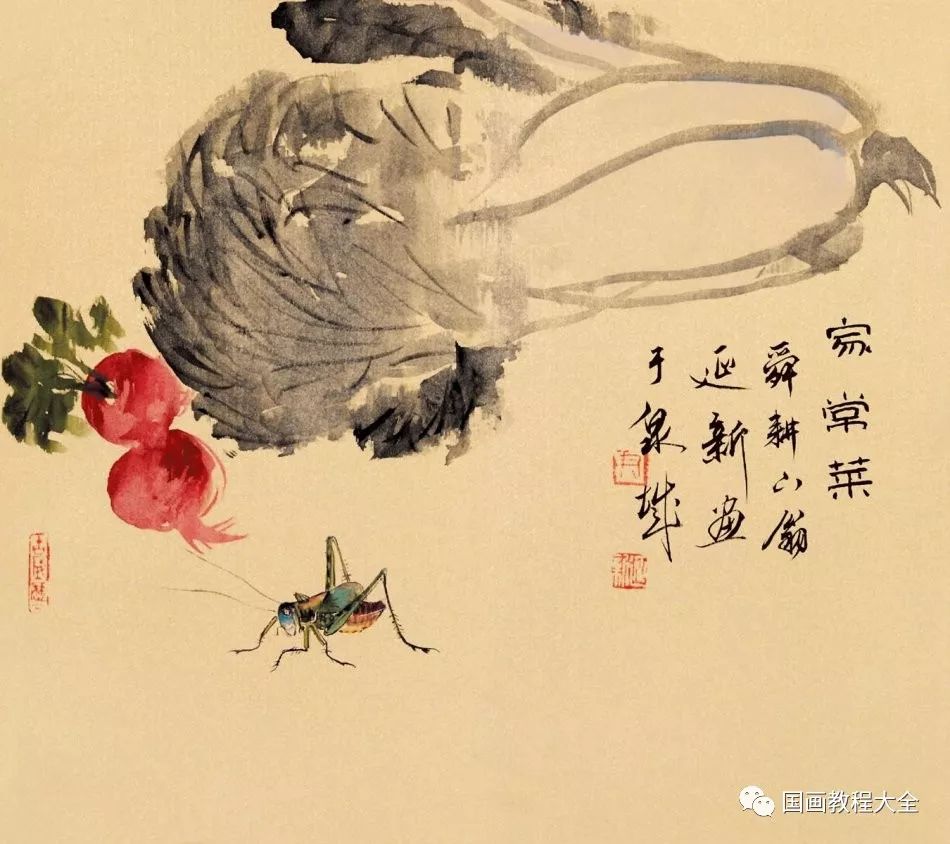 家常菜
舜耕山翁
延新画
于泉城
国画教程大全